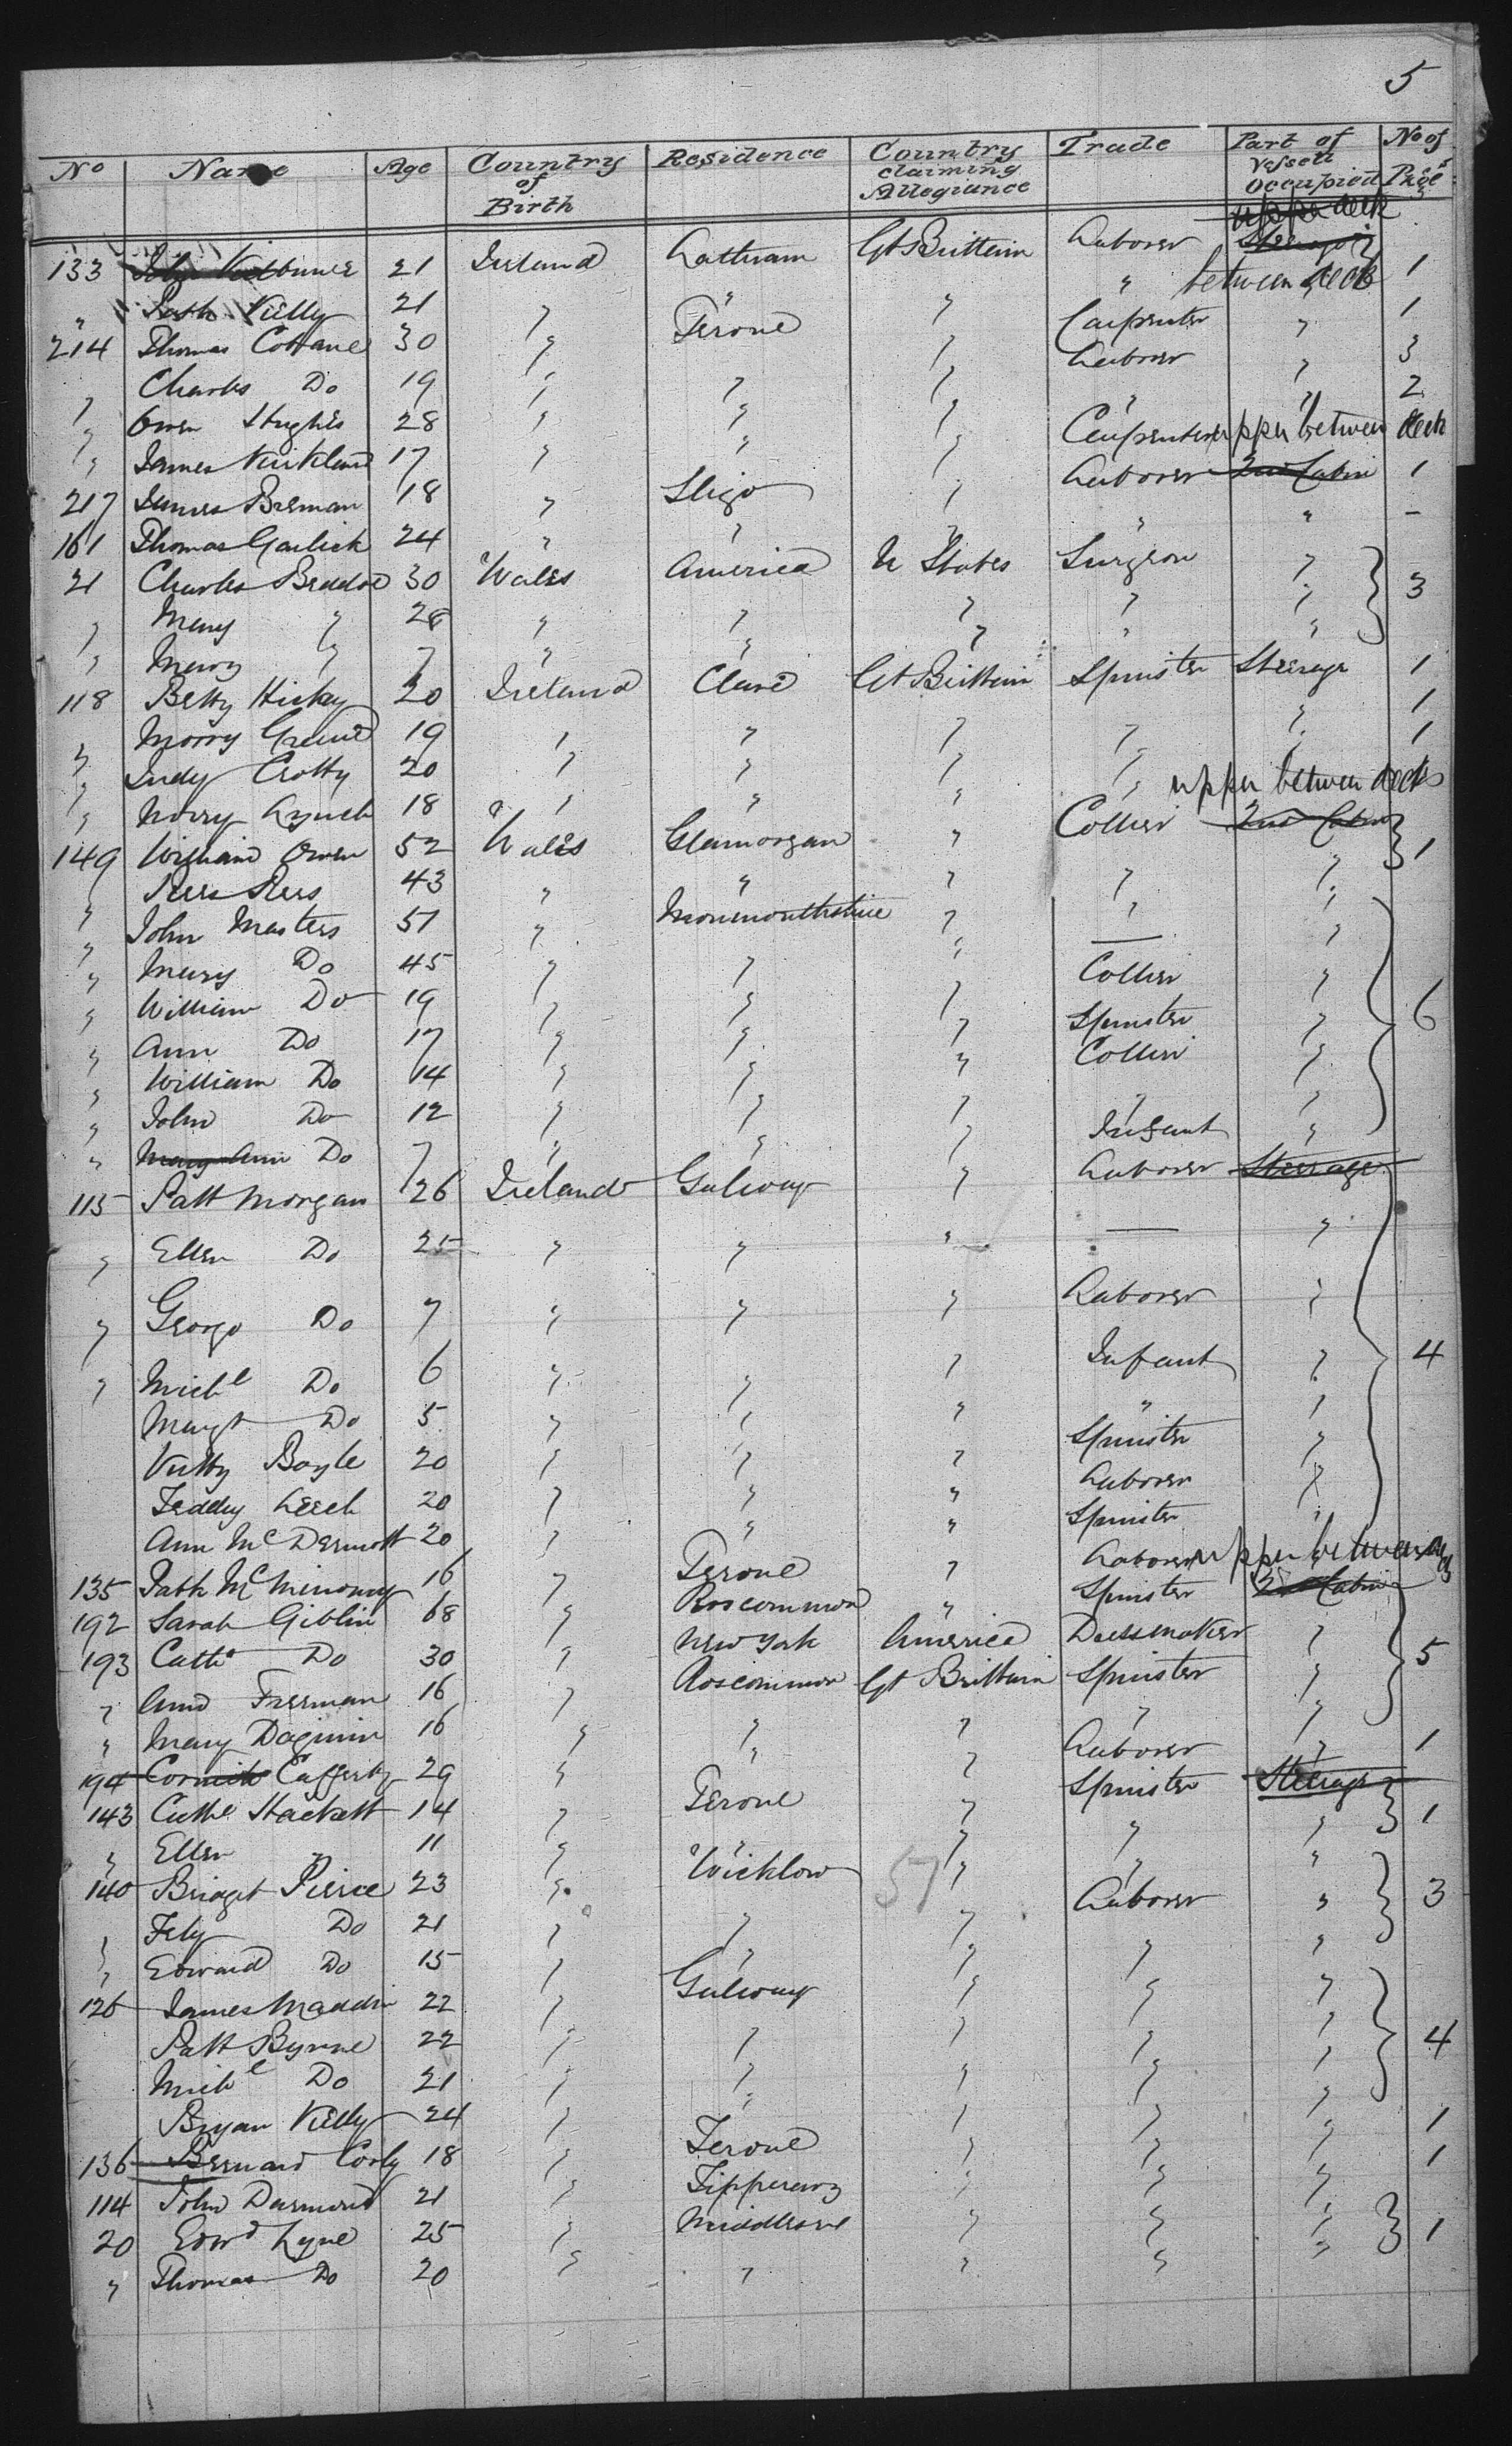 5
No Name Age Country of Birth Residence Country claiming Allegiance Trade Part of Vessell Occupied No of Pkges
upper deck
133 21 Ireland Laitram Gt Brittain Laborer Steerage
" Patk Kelly 21 " " " " between decks 1
214 Thomas Cohane 30 " Terone " Carpenter " 1
" Charles Do 19 " " " Laborer " 3
" Owen Hughes 28 " " " " " 2
" James Kirkland 17 " " " Carpenter upper between deck
217 James Brenan 18 " Sligo " Laborer 2nd Cabin 1
161 Thomas Garlick 24 " " " " " -
21 Charles Beddoe 30 Wales America U States Surgeon " 3
" Mary " 28 " " " " "
" Mary " 7 " " " " "
118 Betty Hickey 20 Ireland Clare Gt Brittain Spinster Steerage 1
" Morry Grene 19 " " " " " 1
" Judy Crotty 20 " " " " " 1
" Norry Lynch 18 " " " " upper between decks
149 William Owen 52 Wales Glamorgan " Collier 2nd Cabin 1
" Rees Rees 43 " " " " "
" John Masters 51 " Monmouthshire " " "
" Mary Do 45 " " " — "
" William Do 19 " " " Collier " 6
" Ann Do 17 " " " Spinster "
" William Do 14 " " " Collier "
" John Do 12 " " " " "
" Mary Ann Do 7 " " " Infant "
115 Patt Morgan 26 Ireland Galway " Laborer Steerage
" Ellen Do 25 " " " — "
" George Do 7 " " " Laborer "
" Michl Do 6 " " " Infant " 4
Margt Do 5 " " " " "
Kitty Boyle 20 " " " Spinster "
Teddy Leech 20 " " " Laborer "
Ann McDermott 20 " " " Spinster "
135 Patk McMenomy 16 " Terone " Laborer upper between
192 Sarah Giblin 68 " Roscommon " Spinster 2nd Cabin
193 Cathe Do 30 " New York America Dressmaker " 5
" Ann Freeman 16 " Roscommon Gt Brittain Spinster "
" Mary 16 " " " " "
194 Cafferty 29 " " " Laborer " 1
143 Cathe Hackett 14 " Terone " Spinster Steerage 1
" Ellen " 11 " " " " "
140 Bridget Pierce 23 " Wicklow " " " 3
57
" Do 21 " " " Laborer "
" Edward Do 15 " " " " "
126 James Maddin 22 " Galway " " "
Patt Byrne 22 " " " " " 4
Michl Do 21 " " " " "
Bryan Kelly 24 " " " " "
136 Bernard 18 " Terone " " " 1
114 John Darmond 21 " Tipperary " " " 1
20 Edwd Lyne 25 " Middlesex " " " 1
" Thomas Do 20 " " " " "